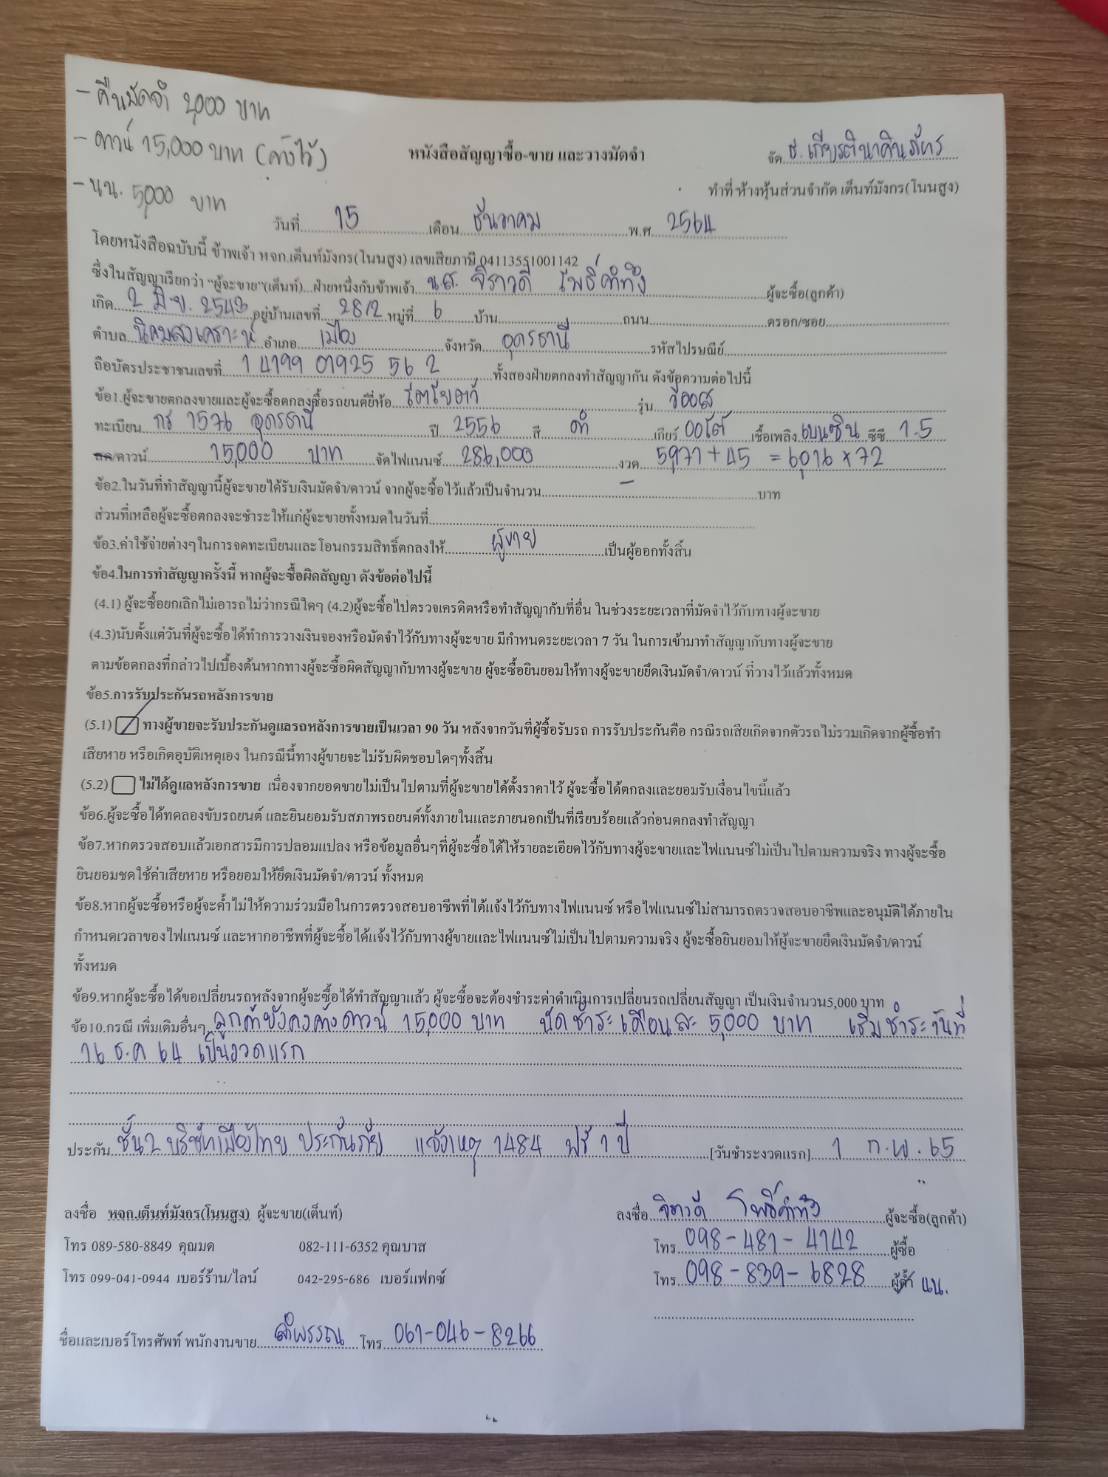 - คืนมัดจำ 2,000 บาท
- ดาวน์ 15,000 บาท (ค้างไว้)
- นน. 5,000 บาท
หนังสือสัญญาซื้อ-ขาย และวางมัดจำ
จัด ธ. เกียรตินาคินภัทร
ทำที่ ห้างหุ้นส่วนจำกัด เต็นท์มังกร(โนนสูง)
วันที่ 15 เดือน ธันวาคม พ.ศ. 2564
โดยหนังสือฉบับนี้ ข้าพเจ้า หจก.เต็นท์มังกร(โนนสูง) เลขเสียภาษี 04113551001142
ซึ่งในสัญญาเรียกว่า "ผู้จะขาย"(เต็นท์)...ฝ่ายหนึ่งกับข้าพเจ้า นส. จิราวดี โพธิ์คำทึง ผู้จะซื้อ(ลูกค้า)
เกิด 2 มิ.ย. 2543 อยู่บ้านเลขที่ 28/2 หมู่ที่ 6 บ้าน ถนน ตรอก/ซอย
ตำบล นิคมสงเคราะห์ อำเภอ เมือง จังหวัด อุดรธานี รหัสไปรษณีย์
ถือบัตรประชาชนเลขที่ 1 4199 01925 56 2 ทั้งสองฝ่ายตกลงทำสัญญากัน ดังข้อความต่อไปนี้
ข้อ1.ผู้จะขายตกลงขายและผู้จะซื้อตกลงซื้อรถยนต์ยี่ห้อ โตโยต้า รุ่น วีออส
ทะเบียน กร 1576 อุดรธานี ปี 2556 สี ดำ เกียร์ ออโต้ เชื้อเพลิง เบนซิน ซีซี 1.5
สด/ดาวน์ 15,000 บาท จัดไฟแนนซ์ 286,000 งวด 5971+45 = 6016 x 72
ข้อ2.ในวันที่ทำสัญญานี้ผู้จะขายได้รับเงินมัดจำ/ดาวน์ จากผู้จะซื้อไว้แล้วเป็นจำนวน - บาท
ส่วนที่เหลือผู้จะซื้อตกลงจะชำระให้แก่ผู้จะขายทั้งหมดในวันที่
ข้อ3.ค่าใช้จ่ายต่างๆในการจดทะเบียนและโอนกรรมสิทธิ์ตกลงให้ ผู้ขาย เป็นผู้ออกทั้งสิ้น
ข้อ4.ในการทำสัญญาครั้งนี้ หากผู้จะซื้อผิดสัญญา ดังข้อต่อไปนี้
(4.1) ผู้จะซื้อยกเลิกไม่เอารถไม่ว่ากรณีใดๆ (4.2)ผู้จะซื้อไปตรวจเครดิตหรือทำสัญญากับที่อื่น ในช่วงระยะเวลาที่มัดจำไว้กับทางผู้จะขาย
(4.3)นับตั้งแต่วันที่ผู้จะซื้อได้ทำการวางเงินจองหรือมัดจำไว้กับทางผู้จะขาย มีกำหนดระยะเวลา 7 วัน ในการเข้ามาทำสัญญากับทางผู้จะขาย
ตามข้อตกลงที่กล่าวไปเบื้องต้นหากทางผู้จะซื้อผิดสัญญากับทางผู้จะขาย ผู้จะซื้อยินยอมให้ทางผู้จะขายยึดเงินมัดจำ/ดาวน์ ที่วางไว้แล้วทั้งหมด
ข้อ5.การรับประกันรถหลังการขาย
(5.1) ทางผู้ขายจะรับประกันดูแลรถหลังการขายเป็นเวลา 90 วัน หลังจากวันที่ผู้ซื้อรับรถ การรับประกันคือ กรณีรถเสียเกิดจากตัวรถไม่รวมเกิดจากผู้ซื้อทำ
เสียหาย หรือเกิดอุบัติเหตุเอง ในกรณีนี้ทางผู้ขายจะไม่รับผิดชอบใดๆทั้งสิ้น
(5.2) ไม่ได้ดูแลหลังการขาย เนื่องจากยอดขายไม่เป็นไปตามที่ผู้จะขายได้ตั้งราคาไว้ ผู้จะซื้อได้ตกลงและยอมรับเงื่อนไขนี้แล้ว
ข้อ6.ผู้จะซื้อได้ทดลองขับรถยนต์ และยินยอมรับสภาพรถยนต์ทั้งภายในและภายนอกเป็นที่เรียบร้อยแล้วก่อนตกลงทำสัญญา
ข้อ7.หากตรวจสอบแล้วเอกสารมีการปลอมแปลง หรือข้อมูลอื่นๆที่ผู้จะซื้อได้ให้รายละเอียดไว้กับทางผู้จะขายและไฟแนนซ์ไม่เป็นไปตามความจริง ทางผู้จะซื้อ
ยินยอมชดใช้ค่าเสียหาย หรือยอมให้ยึดเงินมัดจำ/ดาวน์ ทั้งหมด
ข้อ8.หากผู้จะซื้อหรือผู้จะค้ำไม่ให้ความร่วมมือในการตรวจสอบอาชีพที่ได้แจ้งไว้กับทางไฟแนนซ์ หรือไฟแนนซ์ไม่สามารถตรวจสอบอาชีพและอนุมัติได้ภายใน
กำหนดเวลาของไฟแนนซ์ และหากอาชีพที่ผู้จะซื้อได้แจ้งไว้กับทางผู้ขายและไฟแนนซ์ไม่เป็นไปตามความจริง ผู้จะซื้อยินยอมให้ผู้จะขายยึดเงินมัดจำ/ดาวน์
ทั้งหมด
ข้อ9.หากผู้จะซื้อได้ขอเปลี่ยนรถหลังจากผู้จะซื้อได้ทำสัญญาแล้ว ผู้จะซื้อจะต้องชำระค่าดำเนินการเปลี่ยนรถเปลี่ยนสัญญา เป็นเงินจำนวน5,000 บาท
ข้อ10.กรณี เพิ่มเติมอื่นๆ ลูกค้ายังคงค้างดาวน์ 15,000 บาท นัดชำระเดือนละ 5,000 บาท เริ่มชำระวันที่
16 ธ.ค 64 เป็นงวดแรก
ประกัน ชั้น2 บริษัทเมืองไทย ประกันภัย แจ้งเหตุ 1484 ฟรี 1 ปี [วันชำระงวดแรก] 1 ก.พ. 65
ลงชื่อ หจก.เต็นท์มังกร(โนนสูง) ผู้จะขาย(เต็นท์)
ลงชื่อ จิราวดี โพธิ์คำทึง ผู้จะซื้อ(ลูกค้า)
โทร 089-580-8849 คุณมด 082-111-6352 คุณบาส
โทร 098-481-4742 ผู้ซื้อ
โทร 099-041-0944 เบอร์ร้าน/ไลน์ 042-295-686 เบอร์แฟกซ์
โทร 098-839-6828 ผู้ค้ำ นน.
ชื่อและเบอร์โทรศัพท์ พนักงานขาย ลำพรรณ โทร 061-046-8266